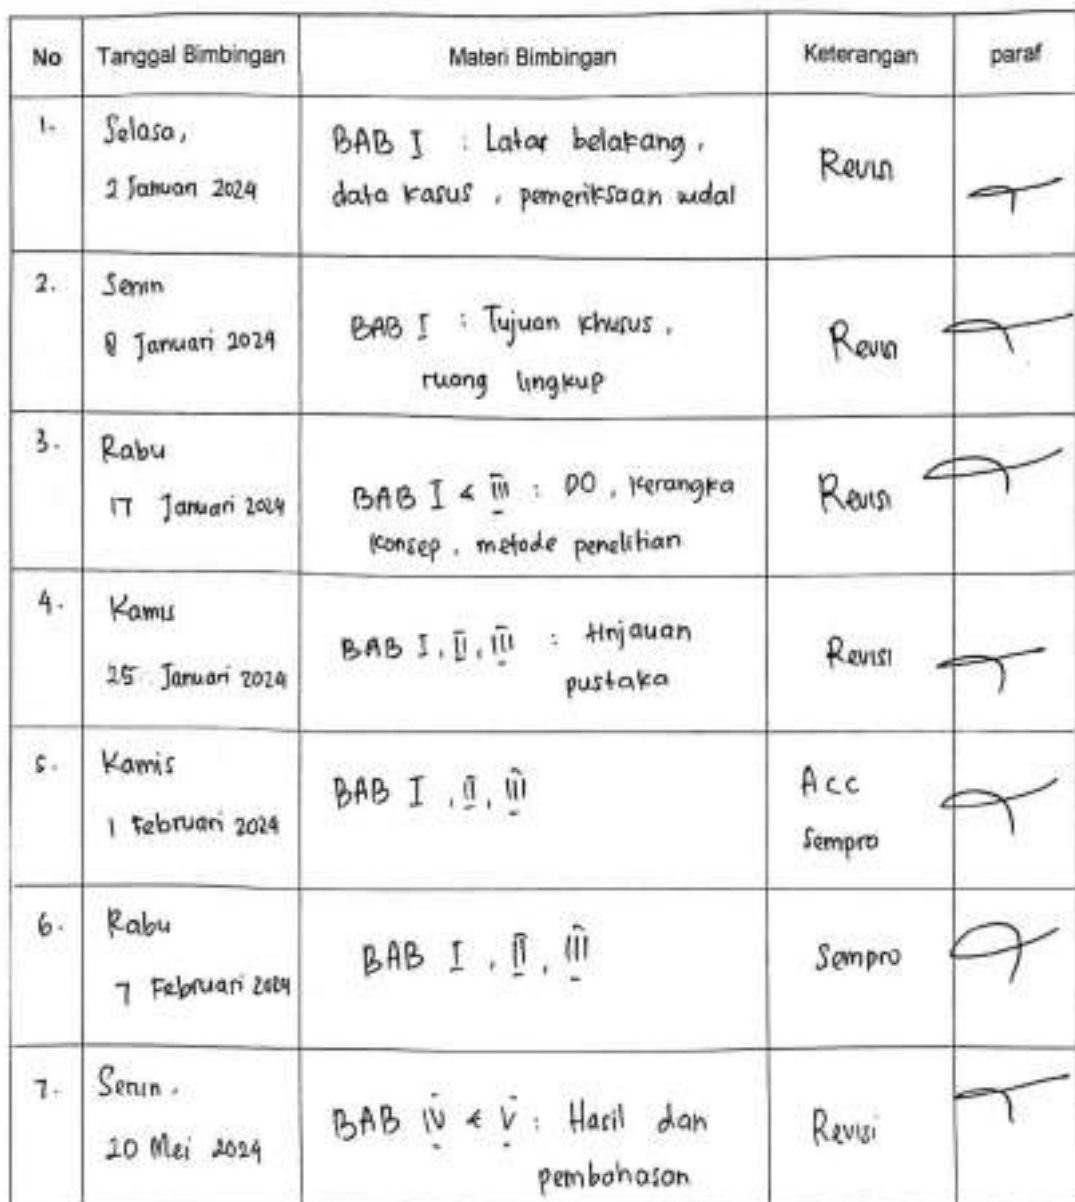 No Tanggal Bimbingan Materi Bimbingan Keterangan paraf
1. Selasa,
2 Januari 2024
BAB I : Latar belakang,
data kasus, pemeriksaan widal
Revisi
2. Senin
8 Januari 2024
BAB I : Tujuan khusus,
ruang lingkup
Revisi
3. Rabu
17 Januari 2024
BAB I & III : DO, kerangka
konsep, metode penelitian
Revisi
4. Kamis
25 Januari 2024
BAB I, II, III : tinjauan
pustaka
Revisi
5. Kamis
1 Februari 2024
BAB I, II, III
Acc
Sempro
6. Rabu
7 Februari 2024
BAB I, II, III
Sempro
7. Senin.
20 Mei 2024
BAB IV & V : Hasil dan
pembahasan
Revisi